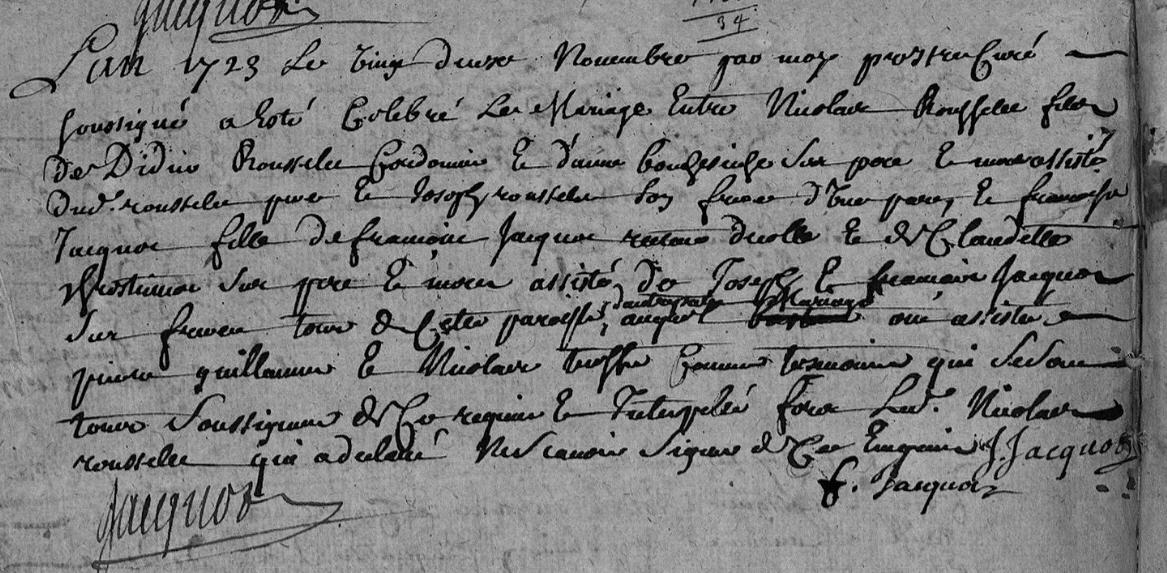 Jacquot
34
L'an 1723 Le vingt deux Novembre par moy prestre Curé
soussigné a esté Celebré Le Mariage Entre Nicolas Rousselle fils
de Didier Rousselle Cordonnier Et d'anne Ses pere Et mere assisté
dud. rousselle pere Et Joseph rousselle Son frere d'une part, Et françoise
Jacquot fille de francois Jacquot d'ecolle Et de Claudette
Ses pere Et mere assistée de Joseph Et francois Jacquot
Ses freres tous de Cette paroisse, d'autre part auquel Mariage ont assisté
pierre guillaume Et Nicolas Comme tesmoins qui Se Sont
tous Soussignés de Ce requis Et Interpellés fors Led. Nicolas
rousselle qui a declaré Ne Scavoir Signer de Ce Enquis J. Jacquot
f. Jacquot
Jacquot